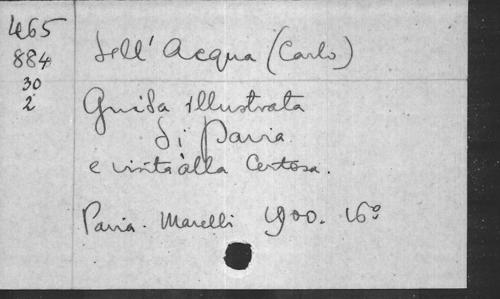 465
884
30
2
Dell' Acqua (Carlo)
Guida illustrata
di Pavia
e visita alla Certosa.
Pavia. Marelli 1900. 16°